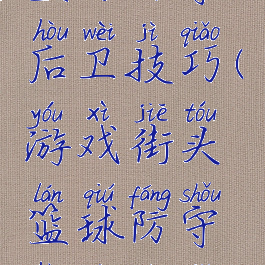 hòu wèi jì qiǎo
后卫技巧(
yóu xì jiē tóu
游戏街头
lán qiú fáng shǒu
篮球防守